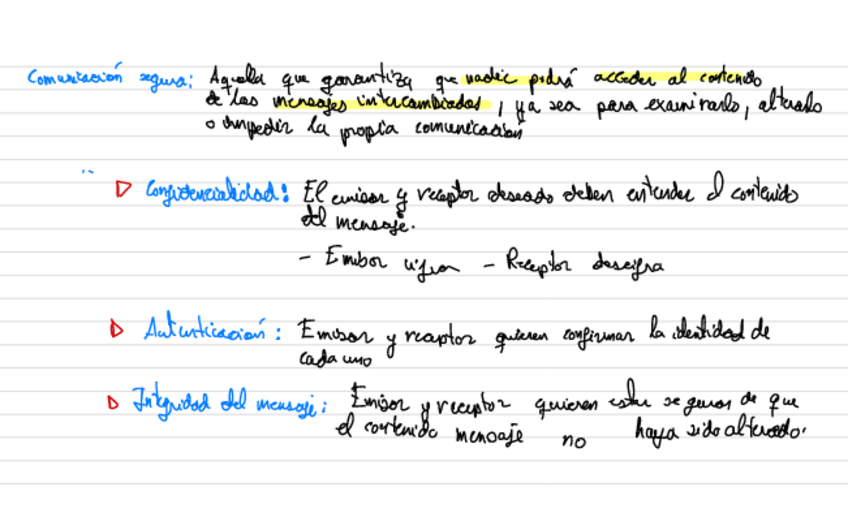 Comunicación segura: Aquella que garantiza que nadie podrá acceder al contenido
de los mensajes intercambiados, ya sea para examinarlo, alterarlo
o impedir la propia comunicación
▷ Confidencialidad: El emisor y receptor deseado deben entender el contenido
del mensaje.
- Emisor cifra - Receptor descifra
▷ Autenticación: Emisor y receptor quieren confirmar la identidad de
cada uno
▷ Integridad del mensaje: Emisor y receptor quieren estar seguros de que
el contenido mensaje no haya sido alterado.